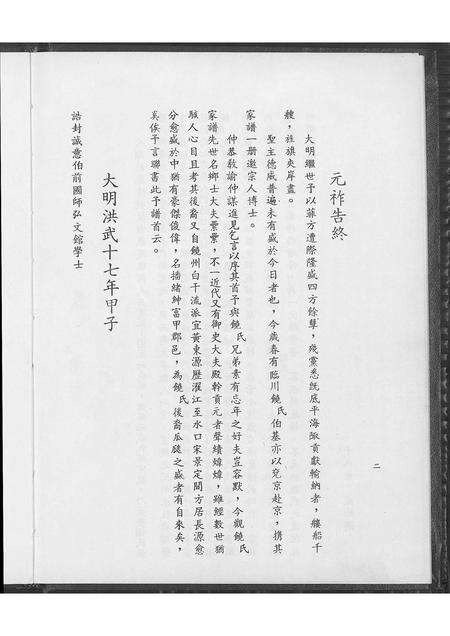 元祚告終
大明繼世予以菲方遭際隆盛四方餘孽，殘黨悉既底平海陬貢獻輸納者，艛船千
艘，旌旗夾岸盡。
聖主德威普遍未有盛於今日者也，今歲春有臨川饒氏伯基亦以兗京赴京，携其
家譜一册邀宗人博士。
仲基敎諭仲謀進見乞言以序其首予與饒氏兄弟素有忘年之好夫豈容默，今觀饒氏
家譜先世名鄉士大夫纍纍，不一近代又有御史大夫殿幹貢元者聲績煒煒，雖經數世猶
駭人心目且考其後裔又自饒州白干流派宜黃東源歷濯江至水口宋景定間方居長源愈
分愈盛於中猶有豪傑俊偉，名搢緒紳富甲郡邑，為饒氏後裔瓜瓞之盛者有自來矣，
奚俟予言聯書此予譜首云。
大明洪武十七年甲子
誥封誠意伯前國師弘文館學士
二